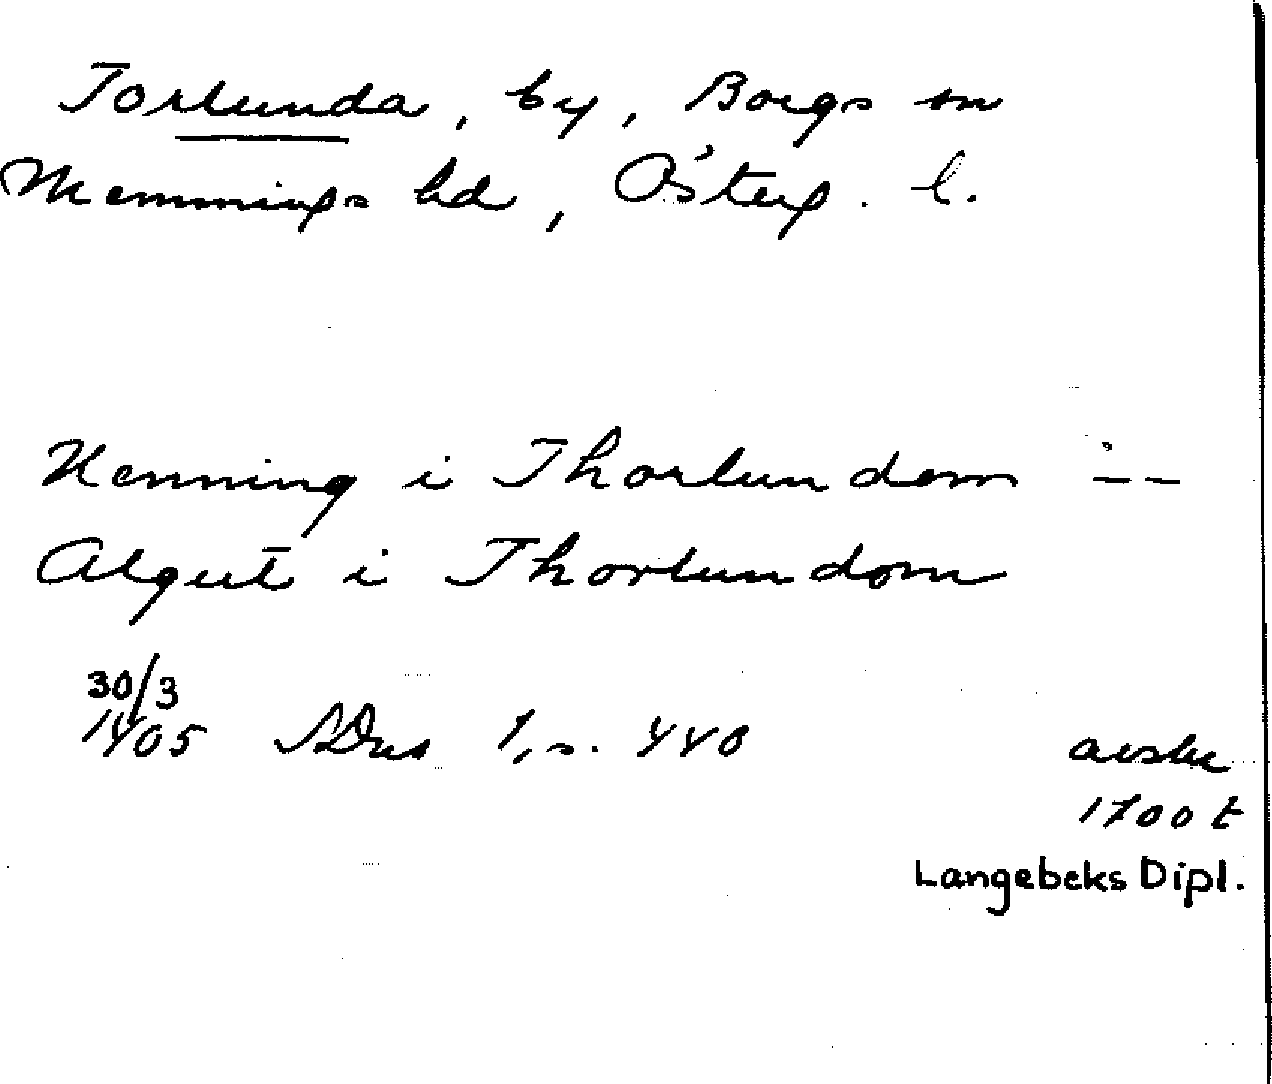 Torlunda, by, Borgs sn
Memmings hd, Österg. l.
Henning i Thorlundom ---
Algut i Thorlundom
30/3
1405 SDns 1, s. 440
avskr
1700 t
Langebeks Dipl.